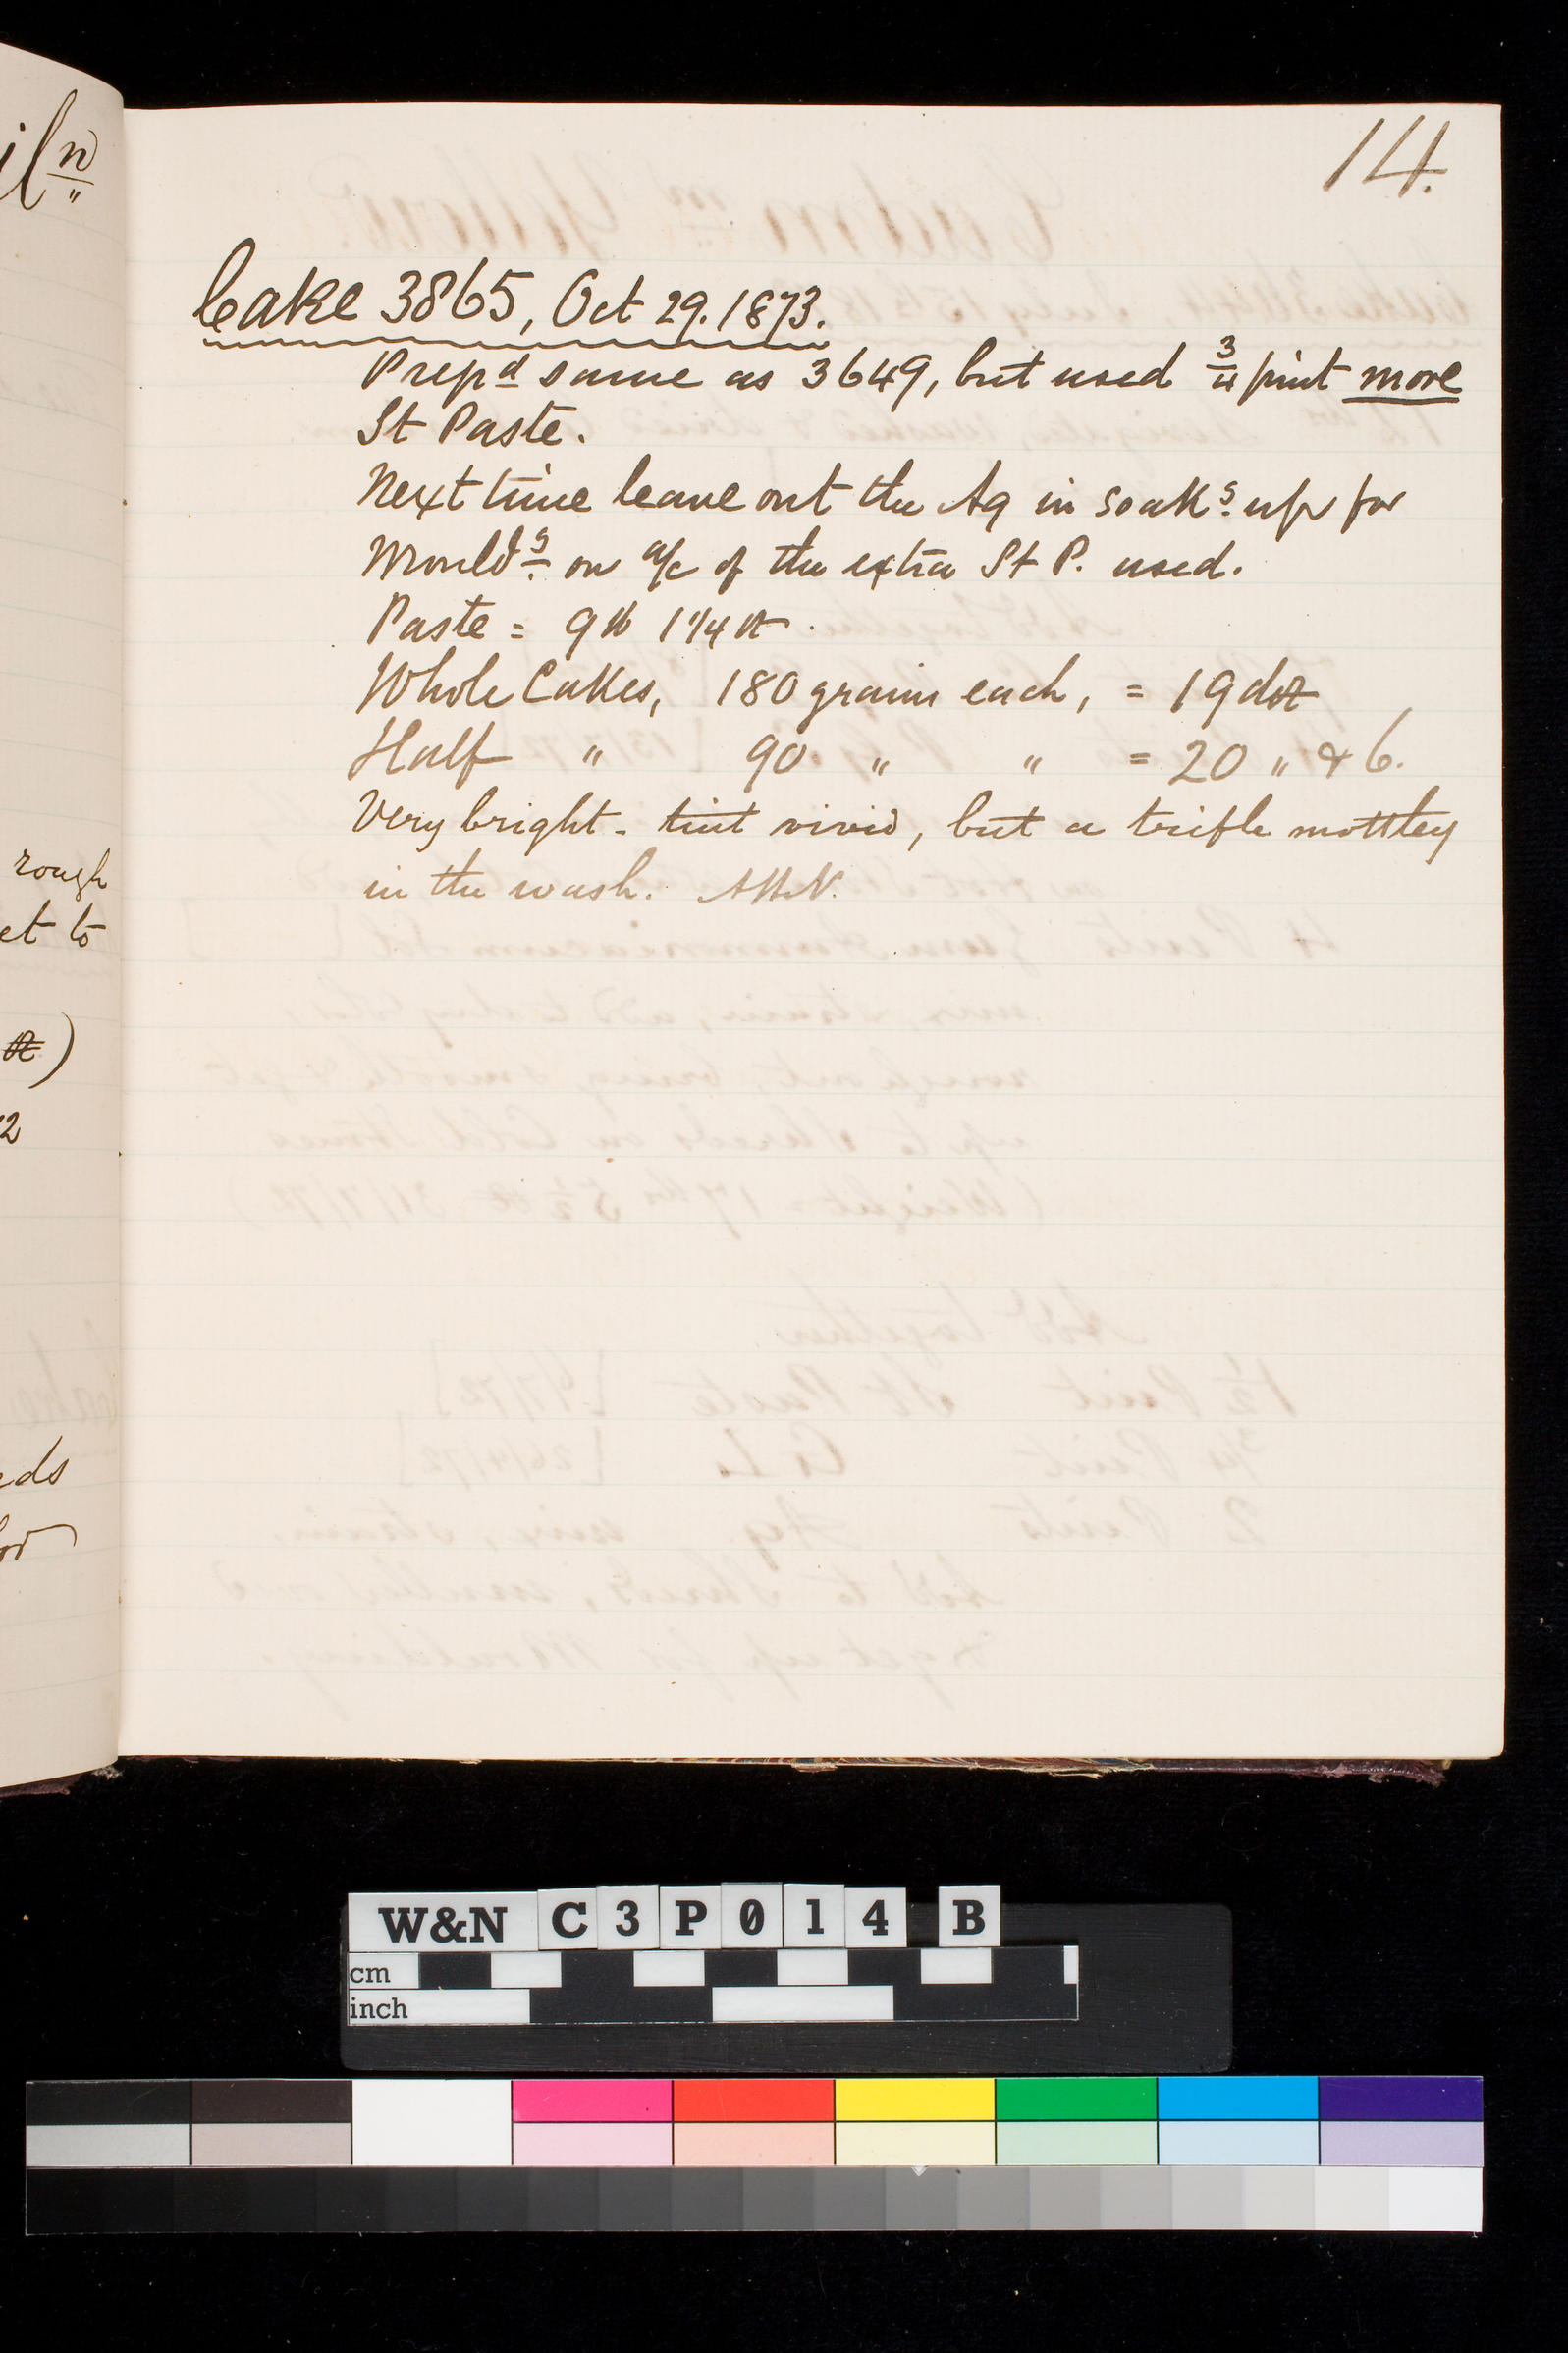 14.
Cake 3865, Oct 29. 1873.
Prepd same as 3649, but used 3/4 pint more
St Paste.
Next time leave out the Aq in soaks. up for
Moulds. on a/c of the extra St P. used.
Paste = 9 lb 1 1/4
Whole Cakes, 180 grains each, = 19 doz
Half " 90 " " = 20 " & 6.
Very bright - tint vivid, but a trifle mottley
in the wash.
iln
rough
et to
)
2
eds
W&N C3P014 B
cm
inch